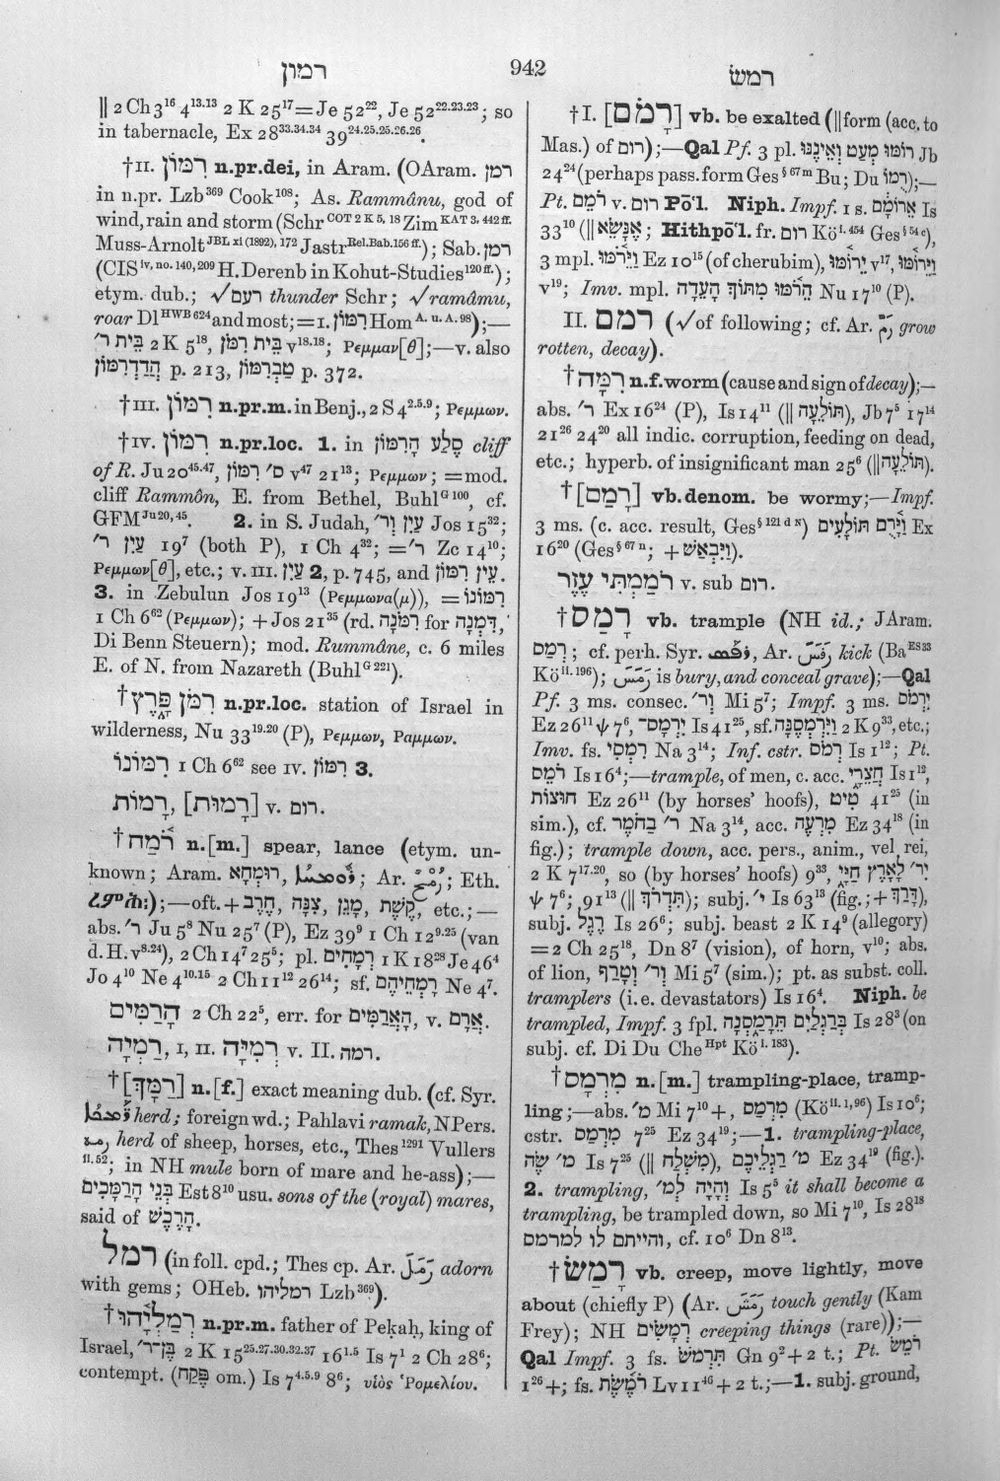 רמון
942
רמשׂ
|| 2 Ch 3¹⁶ 4¹³·¹³ 2 K 25¹⁷=Je 52²², Je 52²²·²³·²³; so
in tabernacle, Ex 28³³·³⁴·³⁴ 39²⁴·²⁵·²⁵·²⁶·²⁶.
†II. רִמּוֹן n.pr.dei, in Aram. (OAram. רמן
in n.pr. Lzb³⁶⁹ Cook¹⁰⁸; As. Rammânu, god of
wind, rain and storm (Schr COT 2 K 5, 18 Zim KAT 3. 442 ff.
Muss-Arnolt JBL xi (1892), 172 Jastr Rel. Bab. 156 ff.); Sab. רמן
(CIS iv, no. 140, 209 H. Derenb in Kohut-Studies 120 ff.);
etym. dub.; √רעם thunder Schr; √ramâmu,
roar Dl HWB 624 and most; =I. רִמּוֹן Hom A. u. A. 98);—
בֵּית ר׳ 2 K 5¹⁸, בֵּית רִמֹּן v¹⁸·¹⁸; Ρεμμαν[θ];—v. also
הֲדַדְרִמּוֹן p. 213, טַבְרִמּוֹן p. 372.
†III. רִמּוֹן n.pr.m. in Benj., 2 S 4²·⁵·⁹; Ρεμμων.
†IV. רִמּוֹן n.pr.loc. 1. in סֶלַע הָרִמּוֹן cliff
of R. Ju 20⁴⁵·⁴⁷, ס׳ רִמּוֹן v⁴⁷ 21¹³; Ρεμμων; =mod.
cliff Rammôn, E. from Bethel, Buhl G 100, cf.
GFM Ju 20, 45. 2. in S. Judah, עַיִן וְר׳ Jos 15³²;
עַיִן ר׳ 19⁷ (both P), 1 Ch 4³²; =ר׳ Zc 14¹⁰;
Ρεμμων[θ], etc.; v. III. עַיִן 2, p. 745, and עֵין רִמּוֹן.
3. in Zebulun Jos 19¹³ (Ρεμμωνα(μ)), = רִמּוֹנוֹ
1 Ch 6⁶² (Ρεμμων); + Jos 21³⁵ (rd. רִמֹּנָה for דִּמְנָה,
Di Benn Steuern); mod. Rummâne, c. 6 miles
E. of N. from Nazareth (Buhl G 221).
†רִמֹּן פֶּרֶץ n.pr.loc. station of Israel in
wilderness, Nu 33¹⁹·²⁰ (P), Ρεμμων, Ραμμων.
רִמּוֹנוֹ 1 Ch 6⁶² see IV. רִמּוֹן 3.
רָמוֹת, [רָמוּת] v. רום.
†רֹמַח n.[m.] spear, lance (etym. un-
known; Aram. רוּמְחָא, ܪܘܡܚܐ; Ar. رُمْحٌ; Eth.
ረምሕ:);—oft. + חֶרֶב, צִנָּה, מָגֵן, קֶשֶׁת, etc.;—
abs. ר׳ Ju 5⁸ Nu 25⁷ (P), Ez 39⁹ 1 Ch 12⁹·²⁵ (van
d. H. v⁸·²⁴), 2 Ch 14⁷ 25⁵; pl. רְמָחִים 1 K 18²⁸ Je 46⁴
Jo 4¹⁰ Ne 4¹⁰·¹⁵ 2 Ch 11¹² 26¹⁴; sf. רָמְחֵיהֶם Ne 4⁷.
הָרַמִּים 2 Ch 22⁵, err. for הָאֲרַמִּים, v. אֲרָם.
רַמְיָה, I, II. רְמִיָּה v. II. רמה.
†[רַמָּךְ] n.[f.] exact meaning dub. (cf. Syr.
ܪܡܟܐ herd; foreign wd.; Pahlavi ramak, NPers.
رمه herd of sheep, horses, etc., Thes 1291 Vullers
II. 52; in NH mule born of mare and he-ass);—
בְּנֵי הָרַמָּכִים Est 8¹⁰ usu. sons of the (royal) mares,
said of הָרֶכֶשׁ.
רמל (in foll. cpd.; Thes cp. Ar. رَمَلَ adorn
with gems; OHeb. רמליהו Lzb³⁶⁹).
†רְמַלְיָהוּ n.pr.m. father of Peḳaḥ, king of
Israel, בֶּן־ר׳ 2 K 15²⁵·²⁷·³⁰·³²·³⁷ 16¹·⁵ Is 7¹ 2 Ch 28⁶;
contempt. (פֶּקַח om.) Is 7⁴·⁵·⁹ 8⁶; υἱὸς Ῥομελίου.
†I. [רָמַם] vb. be exalted (|| form (acc. to
Mas.) of רום);—Qal Pf. 3 pl. רוֹמּוּ מְעַט וְאֵינֶנּוּ Jb
24²⁴ (perhaps pass. form Ges § 67 m Bu; Du רֻמּוֹ);—
Pt. רֹמֵם v. רום Pō‘l. Niph. Impf. 1 s. אֵרוֹמָם Is
33¹⁰ (|| אֶנָּשֵׂא; Hithpō‘l. fr. רום Kö I. 454 Ges § 54 c),
3 mpl. וַיֵּרֹמּוּ Ez 10¹⁵ (of cherubim), יֵרוֹמּוּ v¹⁷, וַיֵּרוֹמּוּ
v¹⁹; Imv. mpl. הֵרֹמּוּ מִתּוֹךְ הָעֵדָה Nu 17¹⁰ (P).
II. רמם (√of following; cf. Ar. رَمَّ grow
rotten, decay).
†רִמָּה n.f. worm (cause and sign of decay);—
abs. ר׳ Ex 16²⁴ (P), Is 14¹¹ (|| תּוֹלֵעָה), Jb 7⁵ 17¹⁴
21²⁶ 24²⁰ all indic. corruption, feeding on dead,
etc.; hyperb. of insignificant man 25⁶ (|| תּוֹלֵעָה).
†[רָמַם] vb. denom. be wormy;—Impf.
3 ms. (c. acc. result, Ges § 121 d N) וַיָּרֻם תּוֹלָעִים Ex
16²⁰ (Ges § 67 n; + וַיִּבְאַשׁ).
רֹמַמְתִּי עֶזֶר v. sub רום.
†רָמַס vb. trample (NH id.; JAram.
רְמַס; cf. perh. Syr. ܪܦܣ, Ar. رَفَسَ kick (Ba ES 33
Kö II. 196); رَمَسَ is bury, and conceal grave);—Qal
Pf. 3 ms. consec. וְר׳ Mi 5⁷; Impf. 3 ms. יִרְמֹס
Ez 26¹¹ ψ 7⁶, יִרְמָס־ Is 41²⁵, sf. וַיִּרְמְסֶנָּה 2 K 9³³, etc.;
Imv. fs. רִמְסִי Na 3¹⁴; Inf. cstr. רְמֹס Is 1¹²; Pt.
רֹמֵס Is 16⁴;—trample, of men, c. acc. חֲצֵרָי Is 1¹²,
חוּצוֹת Ez 26¹¹ (by horses’ hoofs), טִיט 41²⁵ (in
sim.), cf. ר׳ בַחֹמֶר Na 3¹⁴, acc. מִרְעֶה Ez 34¹⁸ (in
fig.); trample down, acc. pers., anim., vel rei,
2 K 7¹⁷·²⁰, so (by horses’ hoofs) 9³³, יִר׳ לָאָרֶץ חַיַּי
ψ 7⁶; 91¹³ (|| תִּדְרֹךְ); subj. י׳ Is 63¹³ (fig.; + דָּרַךְ),
subj. רֶגֶל Is 26⁶; subj. beast 2 K 14⁹ (allegory)
= 2 Ch 25¹⁸, Dn 8⁷ (vision), of horn, v¹⁰; abs.
of lion, וְר׳ וְטָרַף Mi 5⁷ (sim.); pt. as subst. coll.
tramplers (i.e. devastators) Is 16⁴. Niph. be
trampled, Impf. 3 fpl. בְּרַגְלַיִם תֵּרָמַסְנָה Is 28³ (on
subj. cf. Di Du Che Hpt Kö I. 183).
†מִרְמָס n.[m.] trampling-place, tramp-
ling;—abs. מ׳ Mi 7¹⁰+, מִרְמָס (Kö II. 1, 96) Is 10⁶;
cstr. מִרְמַס 7²⁵ Ez 34¹⁹;—1. trampling-place,
מ׳ שֶׂה Is 7²⁵ (|| מִשְׁלַח), מ׳ רַגְלֵיכֶם Ez 34¹⁹ (fig.).
2. trampling, וְהָיָה לְמ׳ Is 5⁵ it shall become a
trampling, be trampled down, so Mi 7¹⁰, Is 28¹⁸
והייתם לו למרמס, cf. 10⁶ Dn 8¹³.
†רָמַשׂ vb. creep, move lightly, move
about (chiefly P) (Ar. رَمَشَ touch gently (Kam
Frey); NH רְמָשִׂים creeping things (rare));—
Qal Impf. 3 fs. תִּרְמֹשׂ Gn 9²+ 2 t.; Pt. רֹמֵשׂ
1²⁶+; fs. רֹמֶשֶׂת Lv 11⁴⁶+ 2 t.;—1. subj. ground,